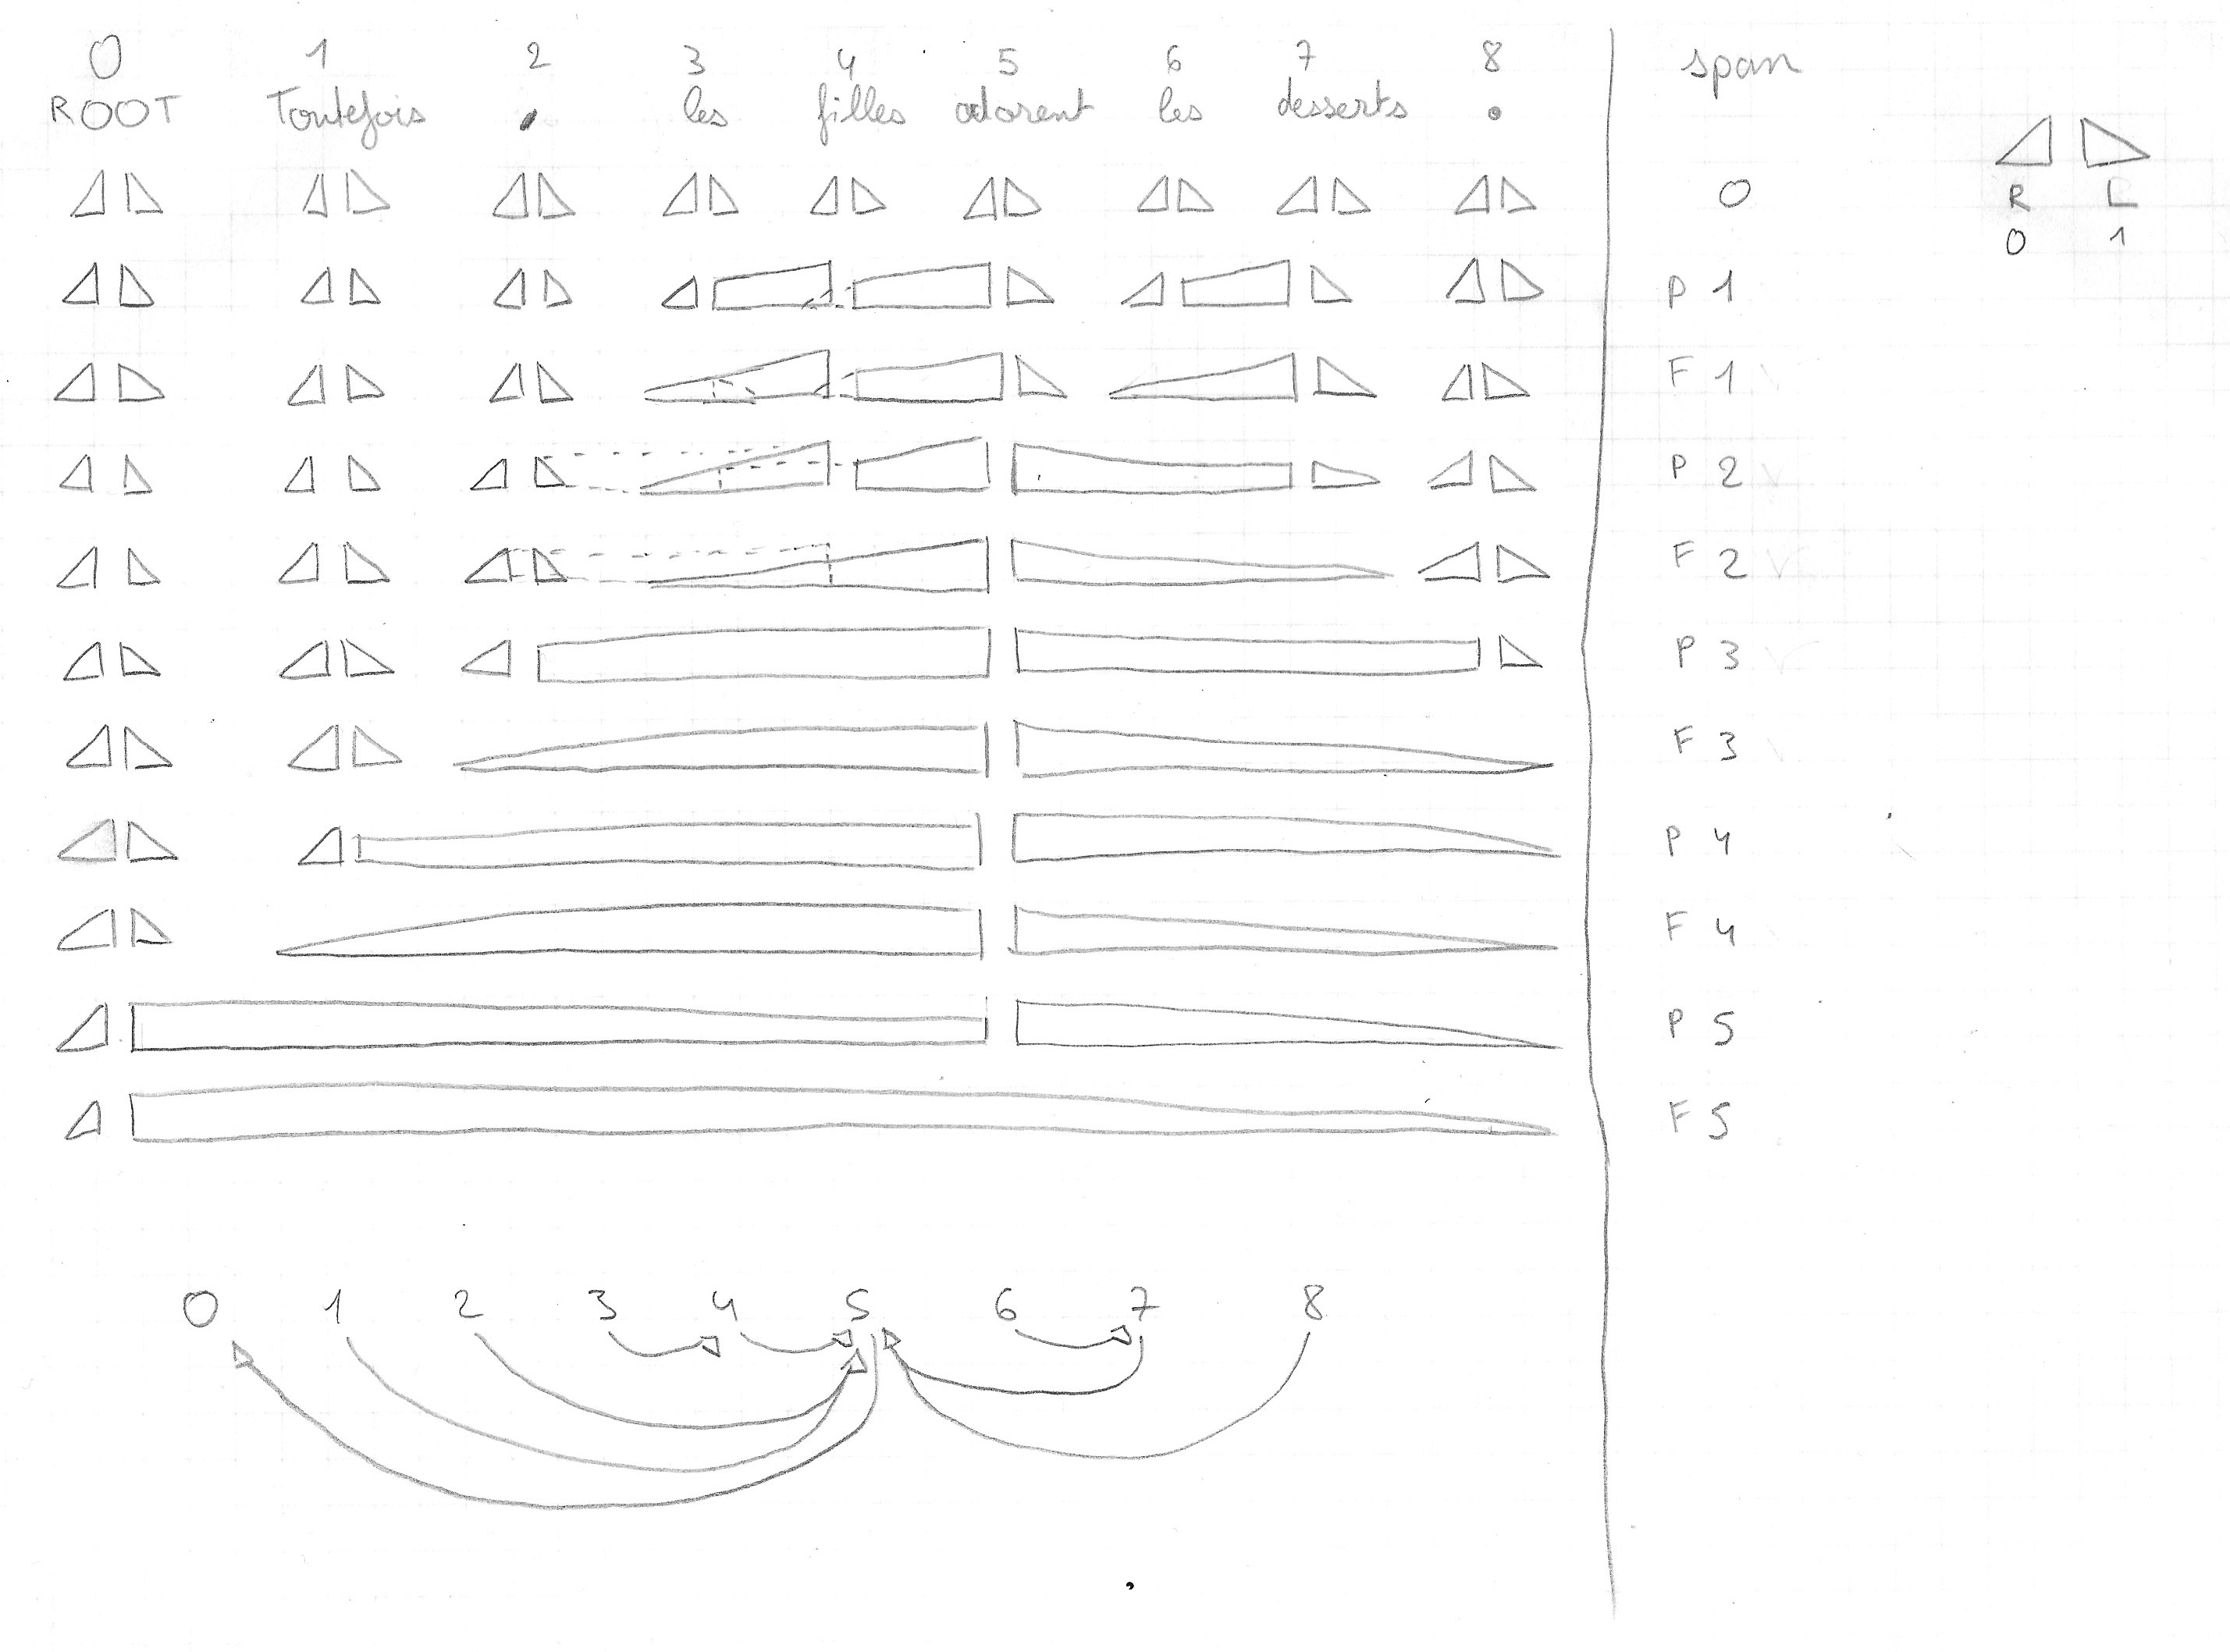 0 1 2 3 4 5 6 7 8 span
ROOT Toutefois , les filles adorent les desserts .
0 R L
0 1
P 1
F 1
P 2
F 2
P 3
F 3
P 4
F 4
P 5
F 5
0 1 2 3 4 5 6 7 8